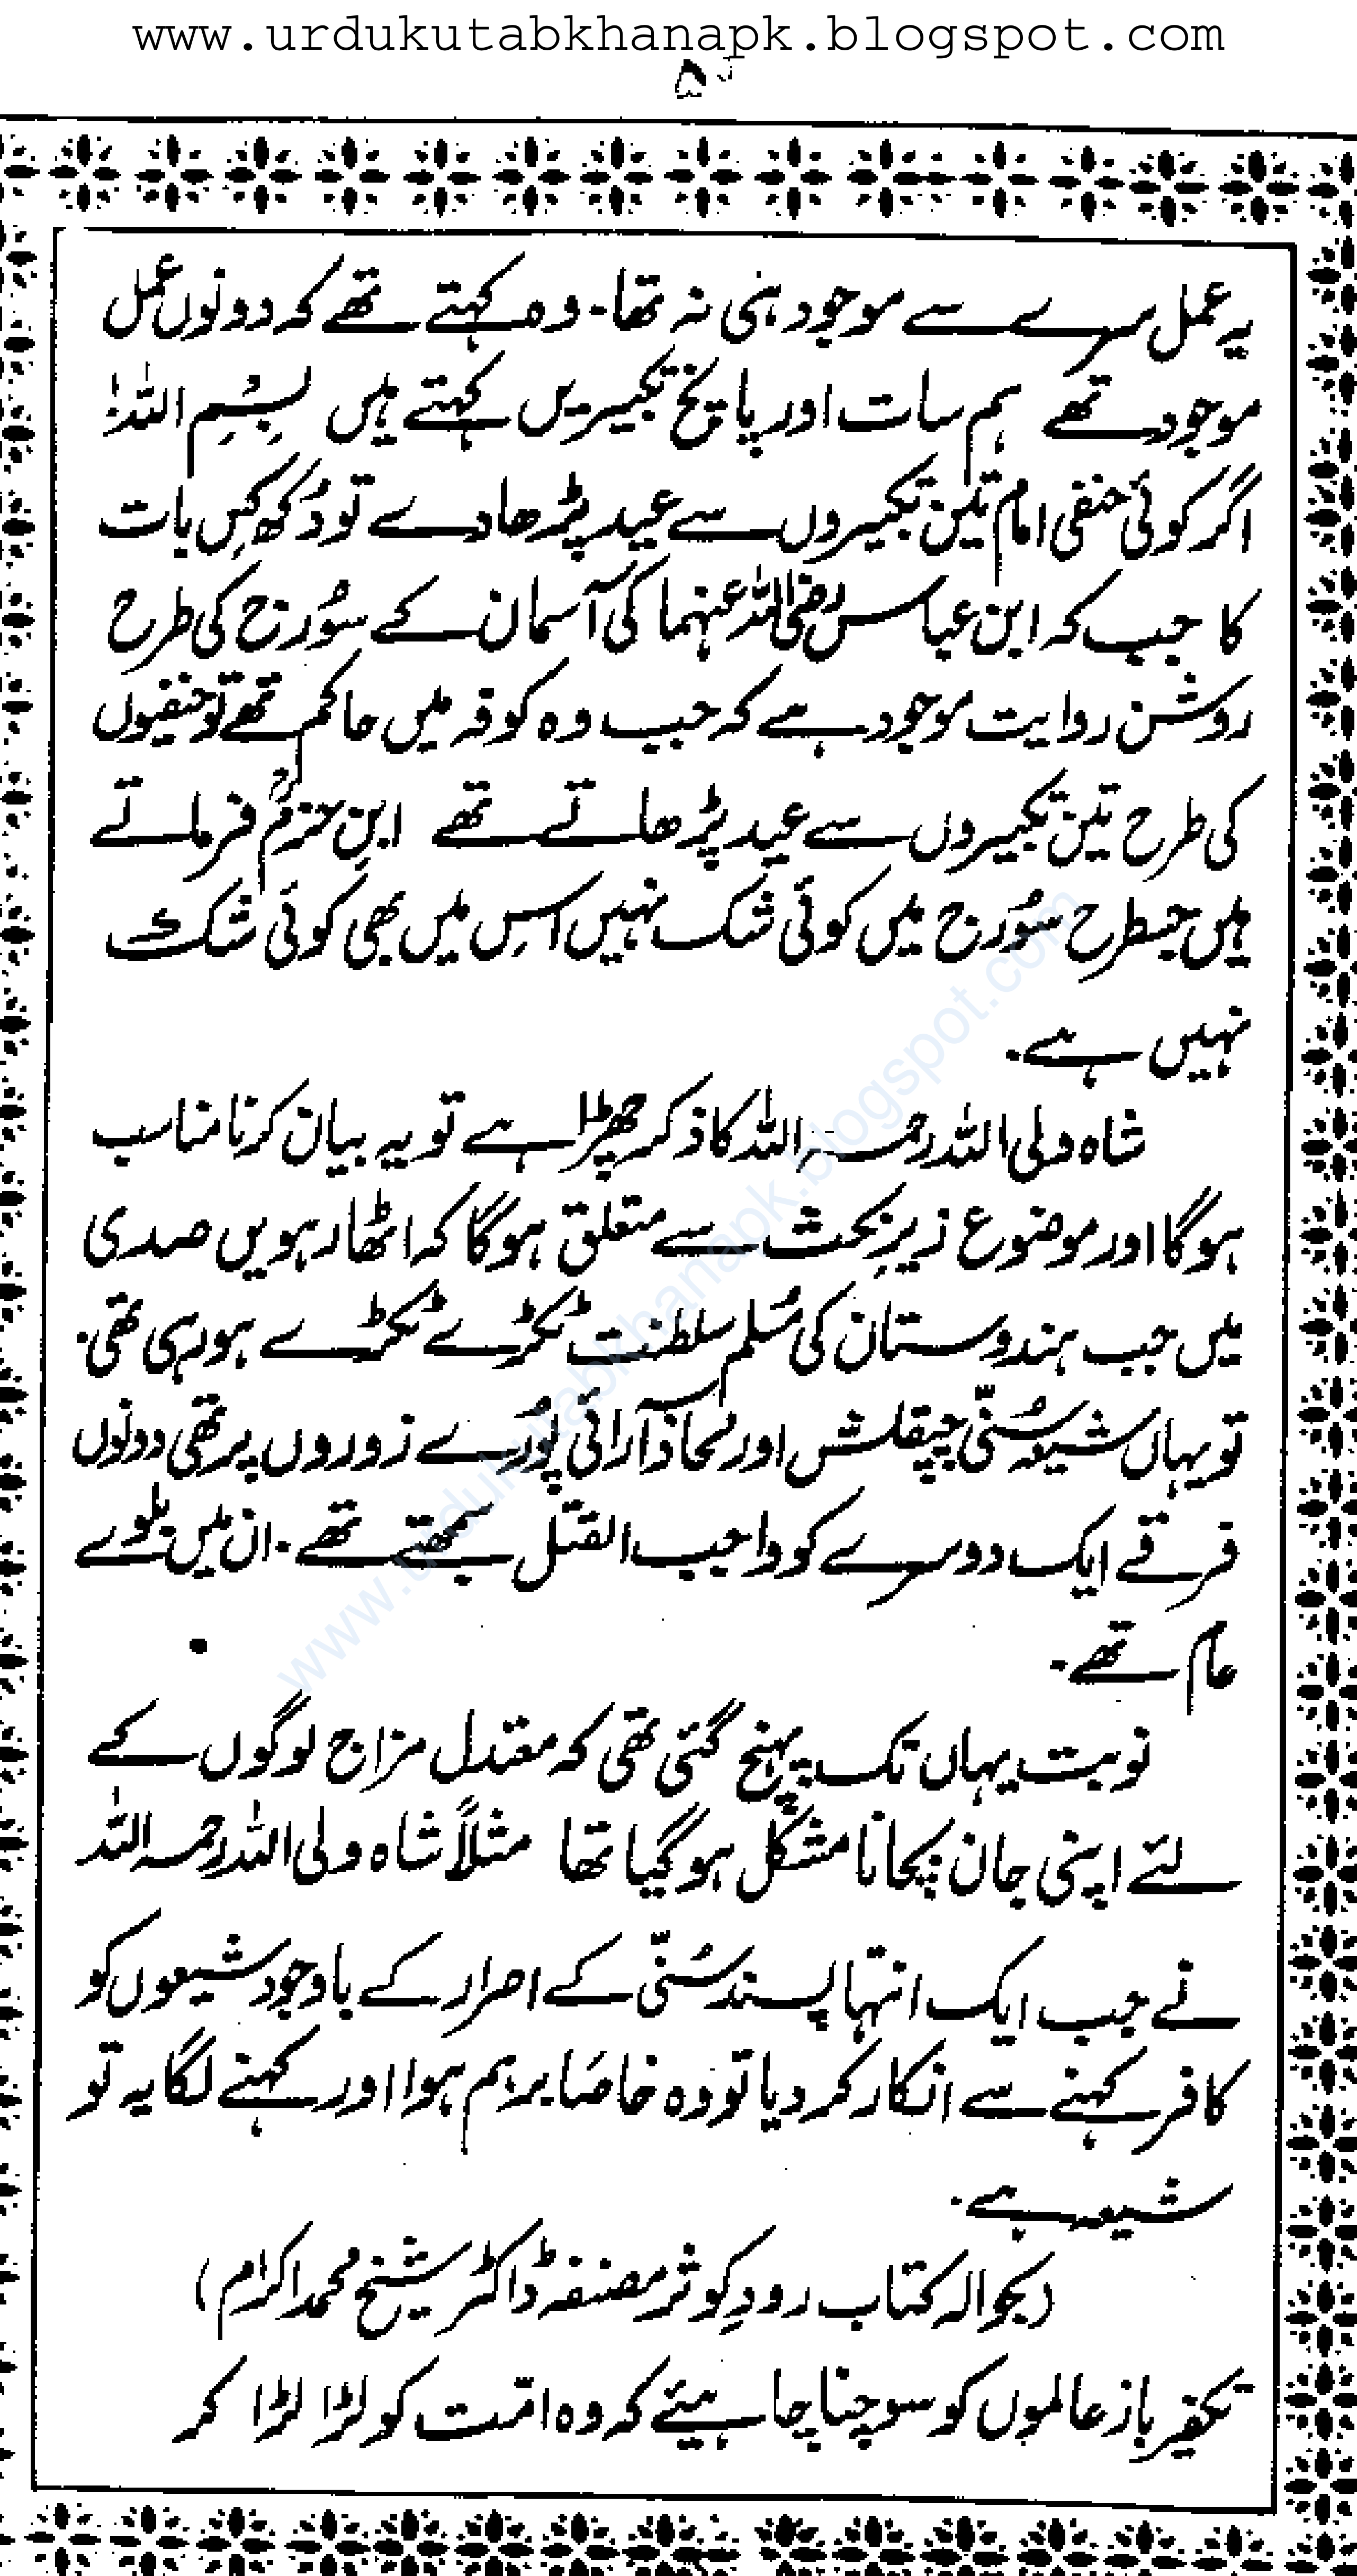 www.urdukutabkhanapk.blogspot.com
یہ عمل سرے سے موجود ہی نہ تھا۔ وہ کہتے تھے کہ دونوں عمل
موجود تھے ہم سات اور پانچ تکبیریں کہتے ہیں بِسْمِ اللہ!
اگر کوئی حنفی امام تین تکبیروں سے عید پڑھا دے تو دُکھ کِس بات
کا جب کہ ابن عباس رضی اللہ عنہما کی آسمان کے سُورج کی طرح
روشن روایت موجود ہے کہ جب وہ کوفہ میں حاکم تھے تو حنفیوں
کی طرح تین تکبیروں سے عید پڑھاتے تھے ابنِ حزمؒ فرماتے
ہیں جسطرح سُورج میں کوئی شک نہیں اسِ میں بھی کوئی شک
نہیں ہے۔
شاہ ولی اللہ رحمہ اللہ کا ذکر چھڑا ہے تو یہ بیان کرنا مناسب
ہوگا اور موضوع زیرِ بحث سے متعلق ہوگا کہ اٹھارہویں صدی
میں جب ہندوستان کی مُسلم سلطنت ٹکڑے ٹکڑے ہو رہی تھی۔
تو یہاں شیعہ سُنّی چپقلش اور محاذ آرائی پُورے زوروں پر تھی دونوں
فرقے ایک دوسرے کو واجب القتل سمجھتے تھے۔ ان میں بلوے
عام تھے۔
نوبت یہاں تک پہنچ گئی تھی کہ معتدل مزاج لوگوں کے
لئے اپنی جان بچانا مشکل ہوگیا تھا مثلاً شاہ ولی اللہ رحمہ اللہ
نے جب ایک انتہا پسند سُنّی کے اصرار کے باوجود شیعوں کو
کافر کہنے سے انکار کر دیا تو وہ خاصَا برہم ہوا اور کہنے لگا یہ تو
شیعہ ہے۔
(بحوالہ کتاب رودِ کوثر مصنفہ ڈاکٹر شیخ محمد اکرام)
تکفیر باز عالموں کو سوچنا چاہیئے کہ وہ امّت کو لڑا لڑا کر
www.urdukutabkhanapk.blogspot.com